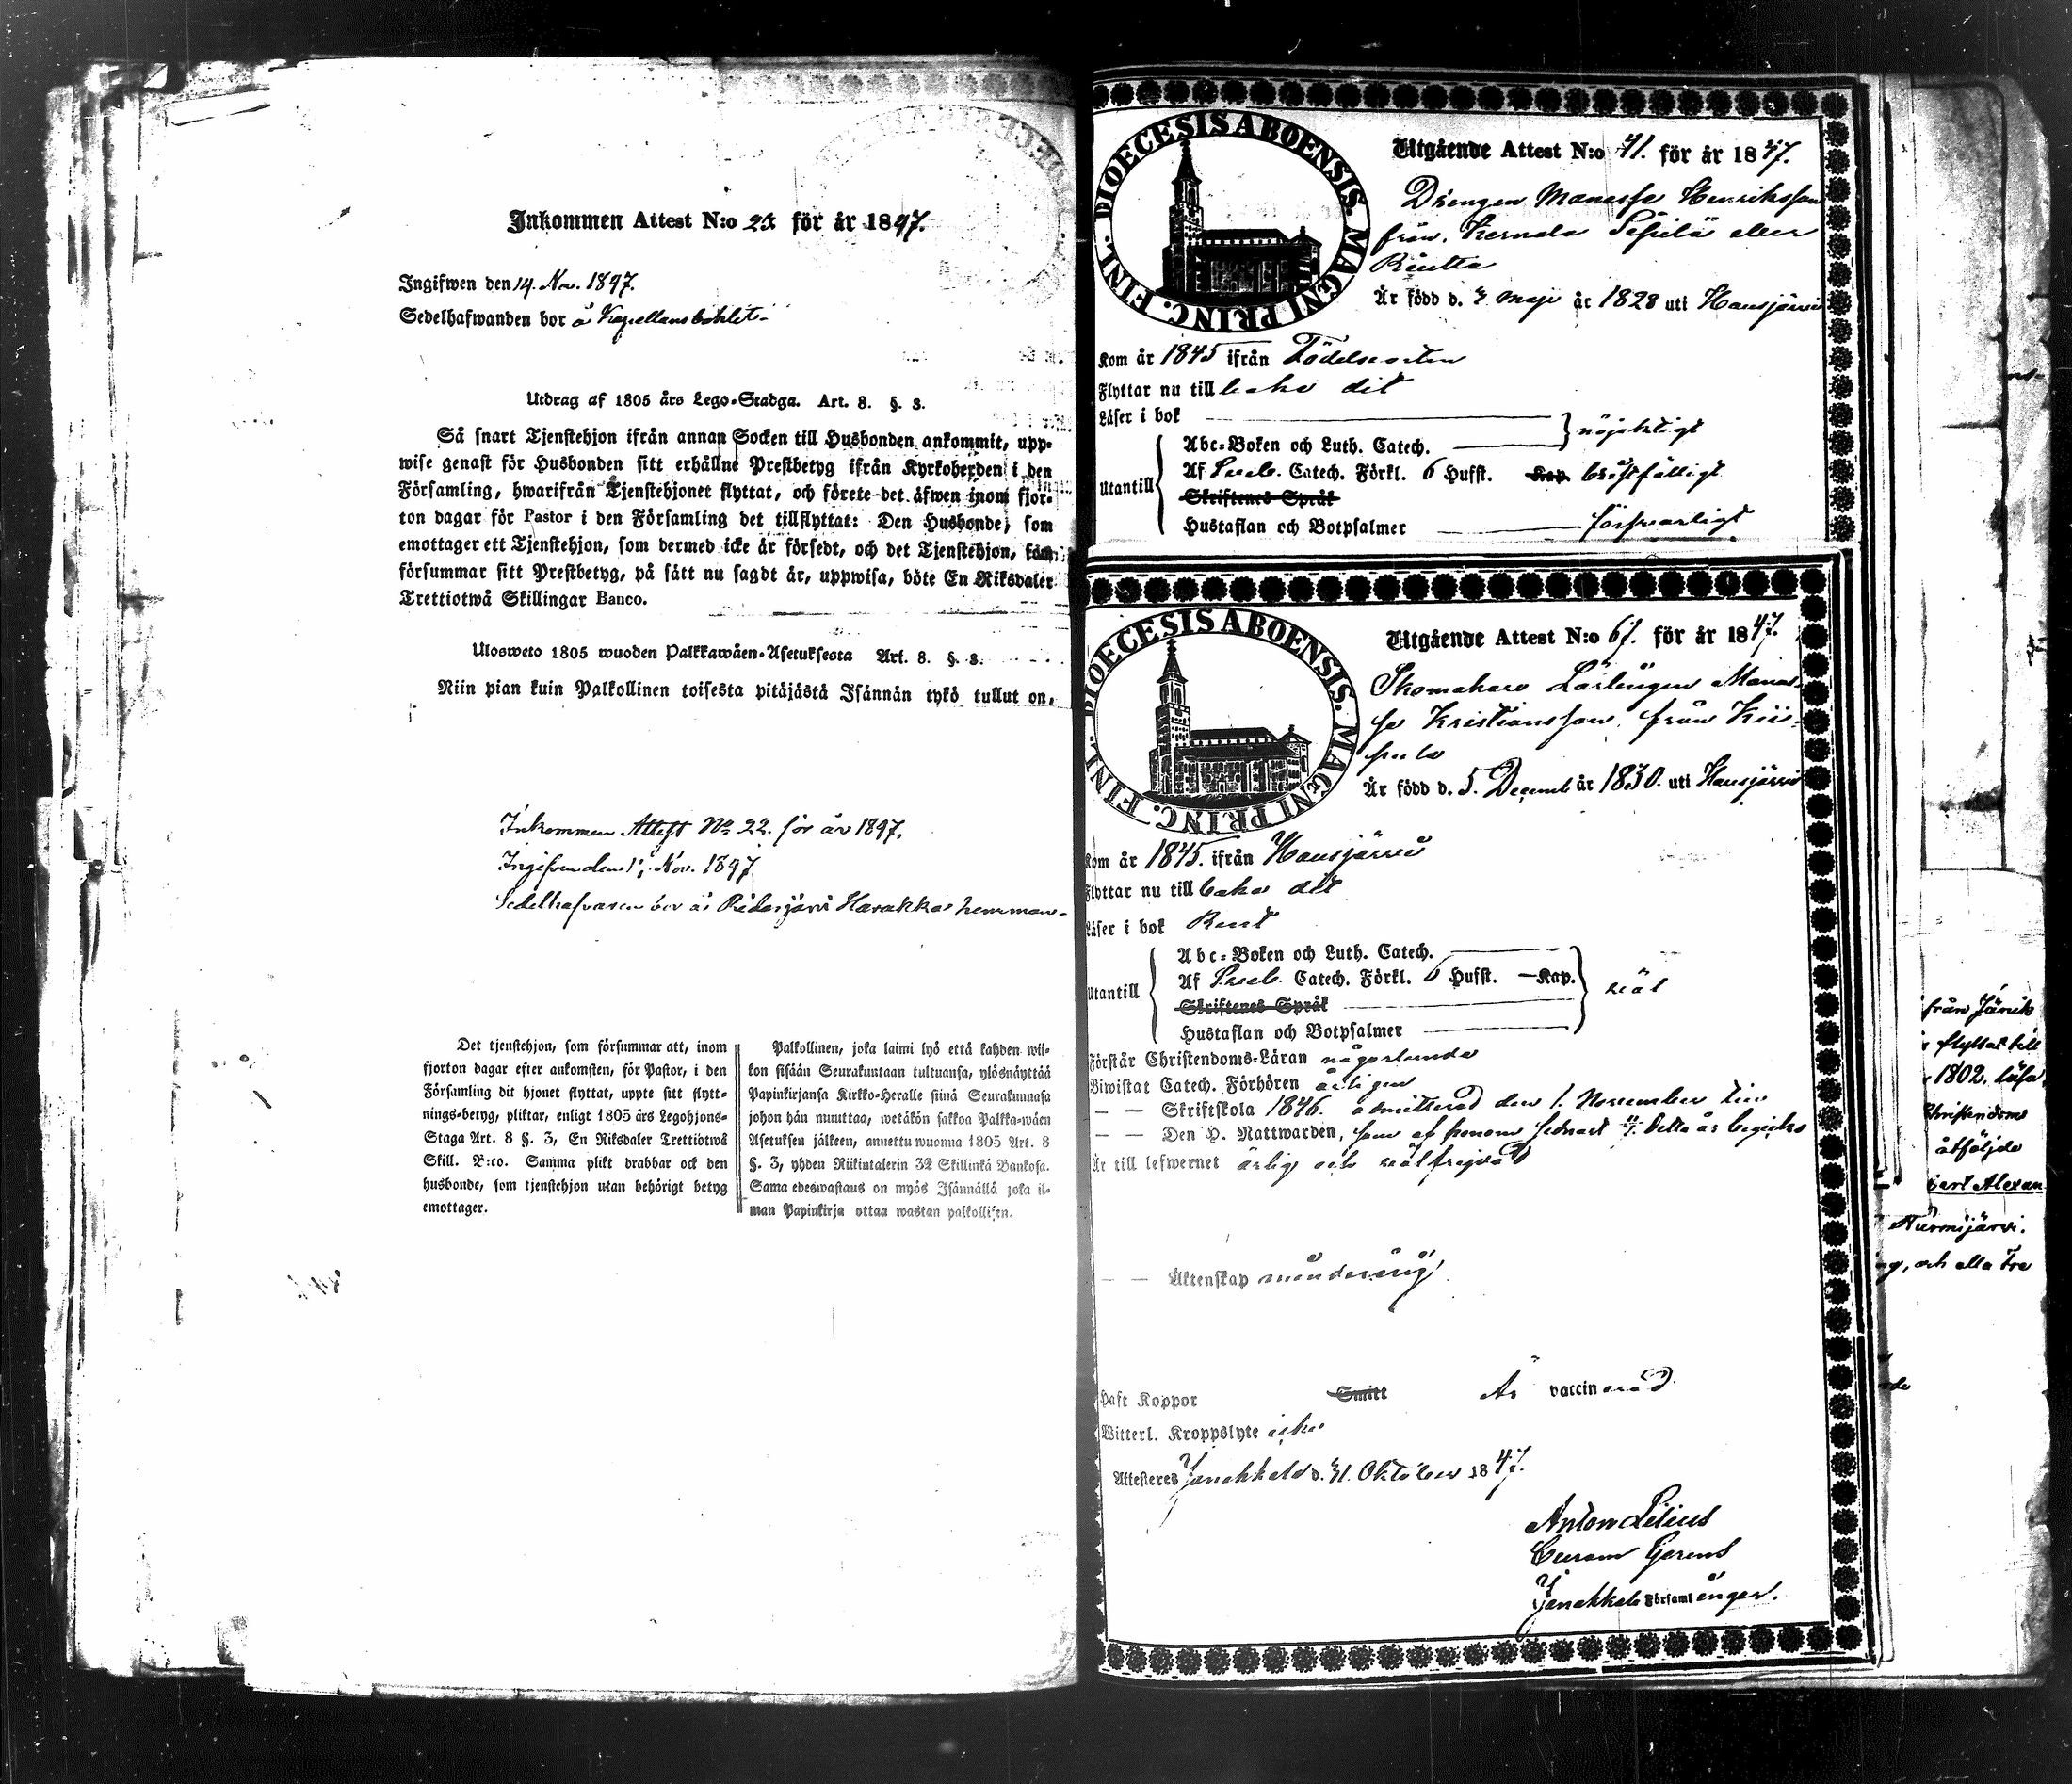 Inkommen Attest N:o 23 för år 1847.
Ingifwen den 14. Nov. 1847.
Sedelhafwanden bor å Kapellansbohlet.
Utdrag af 1805 års Lego-Stadga. Art. 8. §. 3.
Så snart Tjenstehjon ifrån annan Socken till Husbonden ankommit, upp-
wise genast för Husbonden sitt erhållne Prestbetyg ifrån Kyrkoherden i den
Församling, hwarifrån Tjenstehjonet flyttat, och förete det äfwen inom fjor-
ton dagar för Pastor i den Församling det tillflyttat: Den Husbonde, som
emottager ett Tjenstehjon, som dermed icke är försedt, och det Tjenstehjon, som
försummar sitt Prestbetyg, på sätt nu sagdt är, uppwisa, böte En Riksdaler
Trettiotwå Skillingar Banco.
Ulosweto 1805 wuoden Palkkawäen-Asetuksesta Art. 8. §. 3.
Niin pian kuin Palkollinen toisesta pitäjästä Isännän tykö tullut on,
Inkommen Attest No 22. för år 1847.
Ingifven den Nov. 1847
Sedelhafvaren bor å Ridasjärvi Harakka hemman
Det tjenstehjon, som försummar att, inom
fjorton dagar efter ankomsten, för Pastor, i den
Församling dit hjonet flyttat, uppte sitt flytt-
nings-betyg, pliktar, enligt 1805 års Legohjons-
Staga Art. 8 §. 3, En Riksdaler Trettiotwå
Skill. B:co. Samma plikt drabbar ock den
husbonde, som tjenstehjon utan behörigt betyg
emottager.
Palkollinen, joka laimi lyö että kahden wii-
kon sisään Seurakuntaan tultuansa, ylösnäyttää
Papinkirjansa Kirkko-Heralle siinä Seurakunnasa
johon hän muuttaa, wetäkön sakkoa Palkka-wäen
Asetuksen jälkeen, annettu wuonna 1805 Art. 8
§. 3, yhden Riikintalerin 32 Skillinkiä Bankosa.
Sama edeswastaus on myös Isännällä joka il-
man Papinkirja ottaa wastan palkollisen.
DIOECESIS ABOENSIS. MAGNI PRINC. FINL.
Utgående Attest N:o 41. för år 1847.
Drengen Manasse Henriksson
från Kernala Seppilä eller
Är född d. 4 Maji år 1828 uti Hausjärvi
Kom år 1845 ifrån Födelseorten
Flyttar nu tillbaka dit
Läser i bok
Abc-Boken och Luth. Catech. nöjaktigt
Utantill Af Sveb. Catech. Förkl. 6 Hufst. Kap. bristfälligt
Skriftenes Språk
Hustaflan och Botpsalmer försvarligt
DIOECESIS ABOENSIS. MAGNI PRINC. FINL.
Utgående Attest N:o 67. för år 1847.
Skomakare Lärlingen Manas-
se Kristiansson från Kii-
pula
Är född d. 5. Decemb år 1830. uti Hausjärvi
Kom år 1845. ifrån Hausjärvi
Flyttar nu tillbaka dit
Läser i bok Rent
Abc-Boken och Luth. Catech.
Utantill Af Sveb. Catech. Förkl. 6 Hufst. — Kap. väl
Skriftenes Språk
Hustaflan och Botpsalmer
Förstår Christendoms-Läran någorlunda
Biwistat Catech. Förhören årligen
— — Skriftskola 1846. admitterad den 1. November
— — Den H. Nattwarden, som af honom sednast detta år begicks
Är till lefwernet ärlig och välfrejdad
— — Äktenskap minderårig
Haft Koppor Smitt Är vaccinerad
Witterl. Kroppslyte icke
Attesteras Janakkala d. 31. Oktober 1847.
Anton Lilius
Curam Gerens
Janakkala Församlingar.
från
flyttat till
1802. läsa
Christendoms
åtföljde
Carl Alexan
Nurmijärvi.
och alla tre